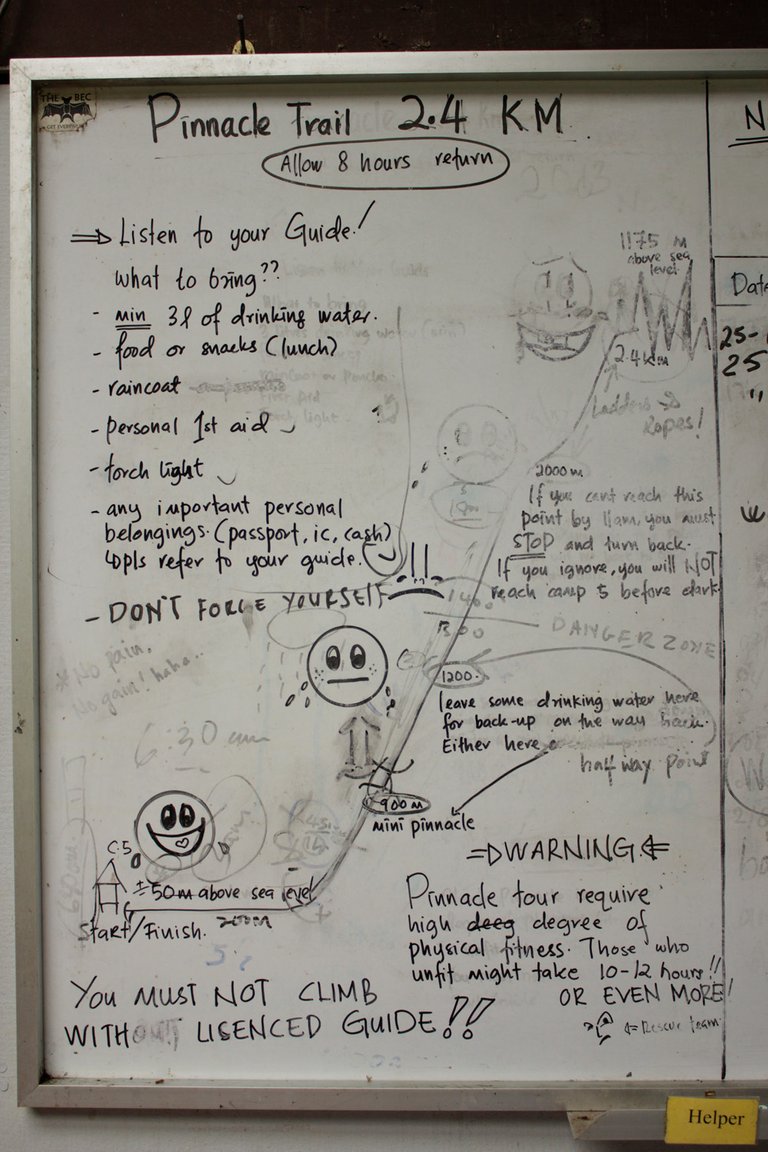 THE BEC
Pinnacle Trail 2.4 KM
Allow 8 hours return
Listen to your Guide!
what to bring??
- min 3l of drinking water.
- food or snacks (lunch)
- raincoat
- personal 1st aid
- torch light
- any important personal
belongings. (passport, ic, cash)
pls refer to your guide.
- DON'T FORCE YOURSELF!!
* No pain,
No gain! haha...
6:30 am
1175 M
above sea
level
2.4 km
Ladders &
Ropes!
2000m
If you cant reach this
point by 11am, you must
STOP and turn back.
If you ignore, you will NOT
reach camp 5 before dark
DANGER ZONE
1200.
leave some drinking water here
for back-up on the way back.
Either here
half way point
900m
mini pinnacle
C.5
±50m above sea level
200m
Start/Finish.
WARNING
Pinnacle tour require
high deeg degree of
physical fitness. Those who
unfit might take 10-12 hours!!
OR EVEN MORE!
Rescue team
YOU MUST NOT CLIMB
WITHOUT LISENCED GUIDE!!
N
Date
25-
25
Helper